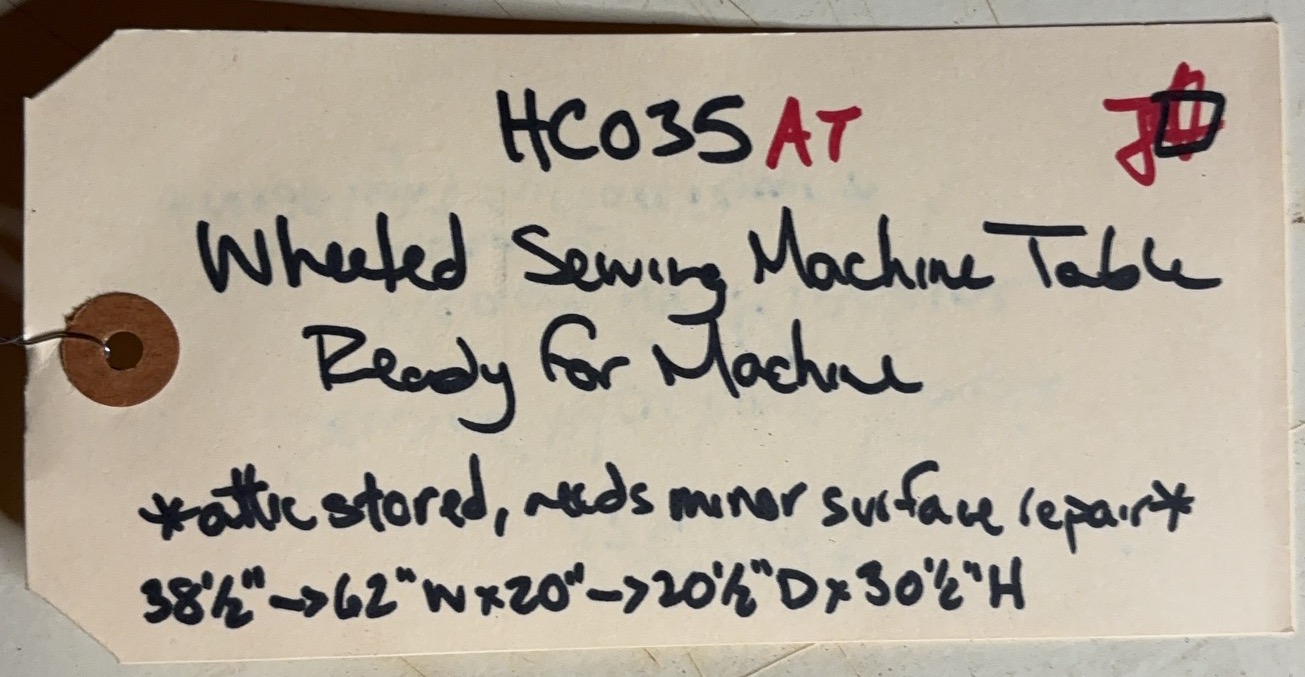 HC035 AT
Wheeled Sewing Machine Table
Ready for Machine
*attic stored, needs minor surface repair*
38½"->62"W x 20"->20½"D x 30½"H